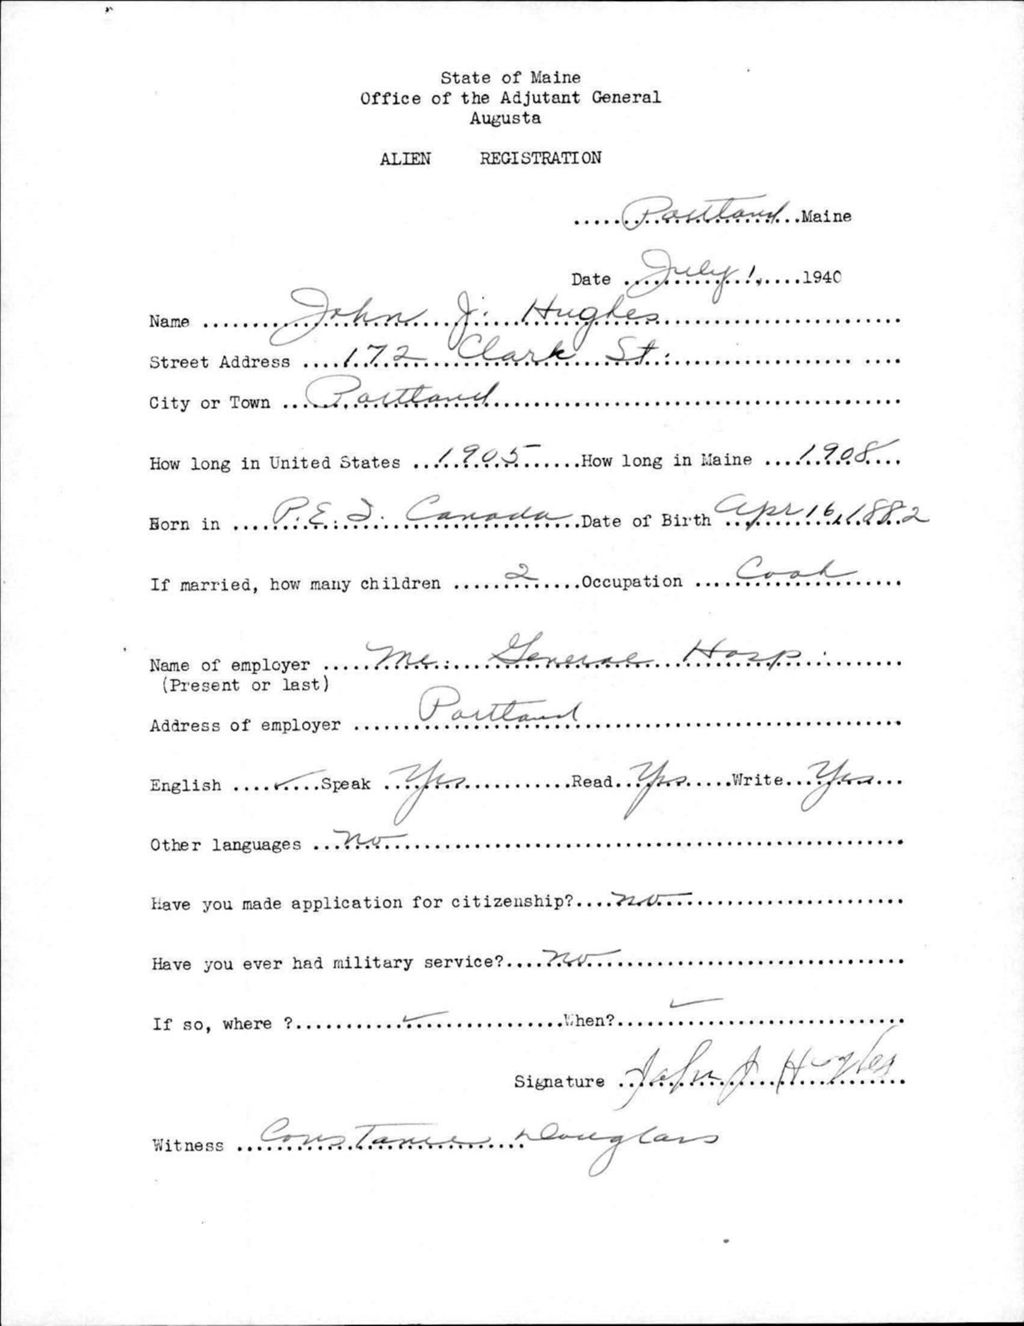 State of Maine
Office of the Adjutant General
Augusta
ALIEN REGISTRATION
.....Portland...Maine
Date ...July 1,....1940
Name ........John J. Hughes........
Street Address ....172 Clark St.........
City or Town ...Portland........
How long in United States ...1905......How long in Maine ....1908...
Born in ....P.E.I. Canada....Date of Birth Apr 16, 1882
If married, how many children ......2......Occupation ....Cook.....
Name of employer .....Me. General Hosp.......
(Present or last)
Address of employer ......Portland......
English ....✓....Speak ...Yes...........Read...Yes.....Write...Yes...
Other languages ...No........
Have you made application for citizenship?....No........
Have you ever had military service?....No........
If so, where ?...........✓...............When?....✓........
Signature ...John J Hughes
Witness ...Constance Douglass